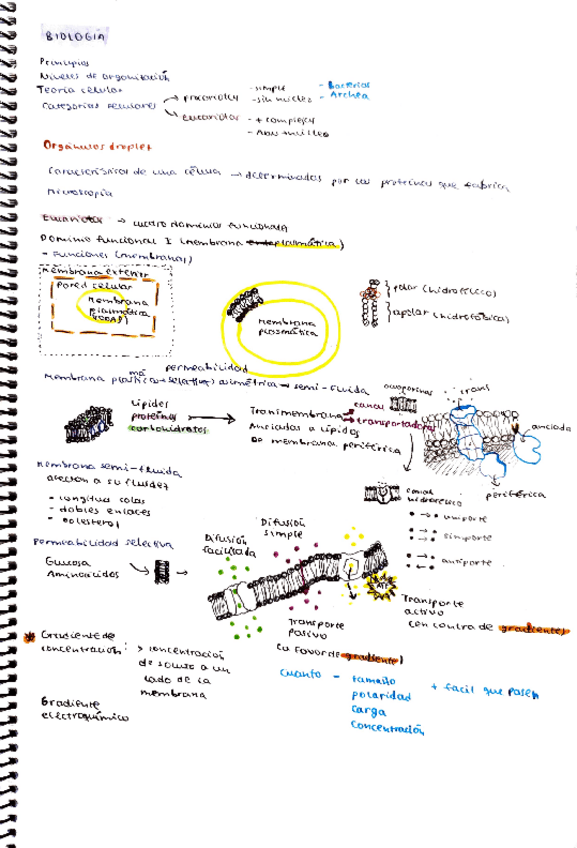 BIOLOGÍA
Principios
Niveles de organización
Teoría celular
Categorías celulares → procariotas - simple - sin núcleo - Bacterias - Archea
→ eucariotas - + complejas
Características de una célula → determinadas por las proteínas que fabrica
Microscopía
Eucariotas → cuatro dominios funcionales
Dominio funcional I (membrana plasmática)
- Funciones (membranas)
Membrana exterior
Pared celular
Membrana plasmática (TODAS)
Membrana plasmática
polar (hidrofílico)
apolar (hidrofóbica)
permeabilidad
Membrana plasmática selectiva asimétrica → semi-fluida
acuoporinas
trans
Lípidos
proteínas
carbohidratos
Transmembrana → canal → transportadora
Ancladas a lípidos
De membrana periférica
anclada
periférica
canal hidrofílico
uniporte
simporte
antiporte
Membrana semi-fluida
afectan a su fluidez
- longitud colas
- dobles enlaces
- colesterol
Permeabilidad selectiva
Glucosa
Aminoácidos
Difusión facilitada
Difusión simple
ATP
Transporte pasivo
a favor de gradiente
Transporte activo
en contra de gradiente
* Gradiente de concentración: > concentración de soluto a un lado de la membrana
Gradiente electroquímico
Cuanto - tamaño
polaridad
carga
concentración
+ fácil que pasen